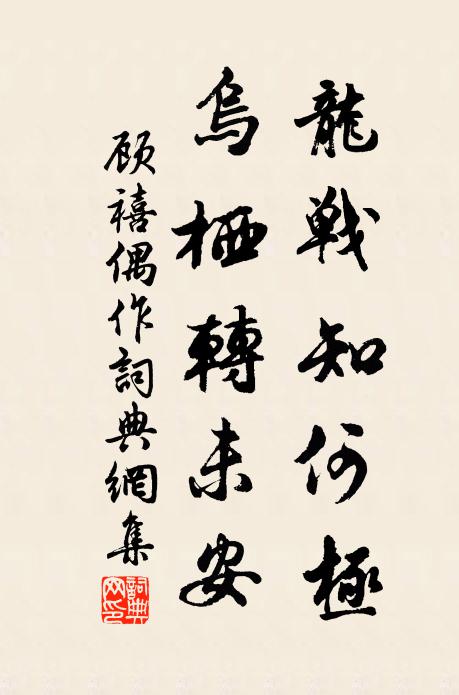 龍戰知何極
烏栖轉未安
顾禧偶作詞典網集
詞典网印